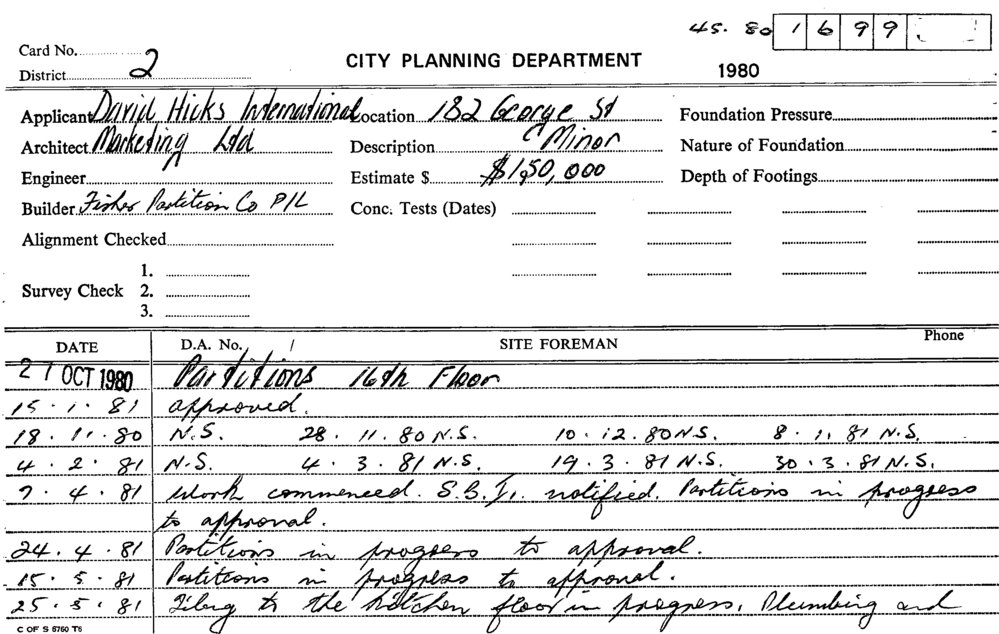 45. 80 1699
Card No.
District 2
CITY PLANNING DEPARTMENT
1980
Applicant David Hicks International Location 182 George St Foundation Pressure
Architect Marketing Ltd Description Minor Nature of Foundation
Engineer Estimate $ $150,000 Depth of Footings
Builder Fisher Partition Co P/L Conc. Tests (Dates)
Alignment Checked
1.
Survey Check 2.
3.
DATE D.A. No. / SITE FOREMAN Phone
27 OCT 1980 Partitions 16th Floor
15.1.81 approved.
18.11.80 N.S. 28.11.80 N.S. 10.12.80 N.S. 8.1.81 N.S.
4.2.81 N.S. 4.3.81 N.S. 19.3.81 N.S. 30.3.81 N.S.
7.4.81 Work commenced. S.B.I. notified. Partitions in progress
to approval.
24.4.81 Partitions in progress to approval.
15.5.81 Partitions in progress to approval.
25.5.81 Tiling to the kitchen floor in progress. Plumbing and
C OF S 6760 T6